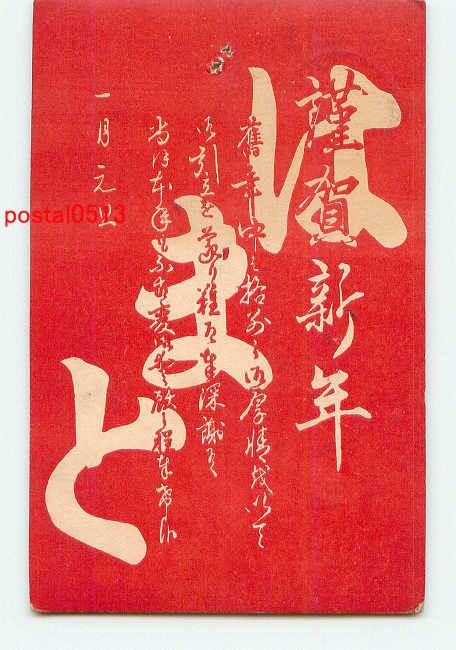 謹賀新年
はまと
舊年中ハ格別之御厚情ヲ以て
御引立を蒙り難有奉深謝候
尚本年も不相変御愛顧之程奉希候
一月元旦
postal0513